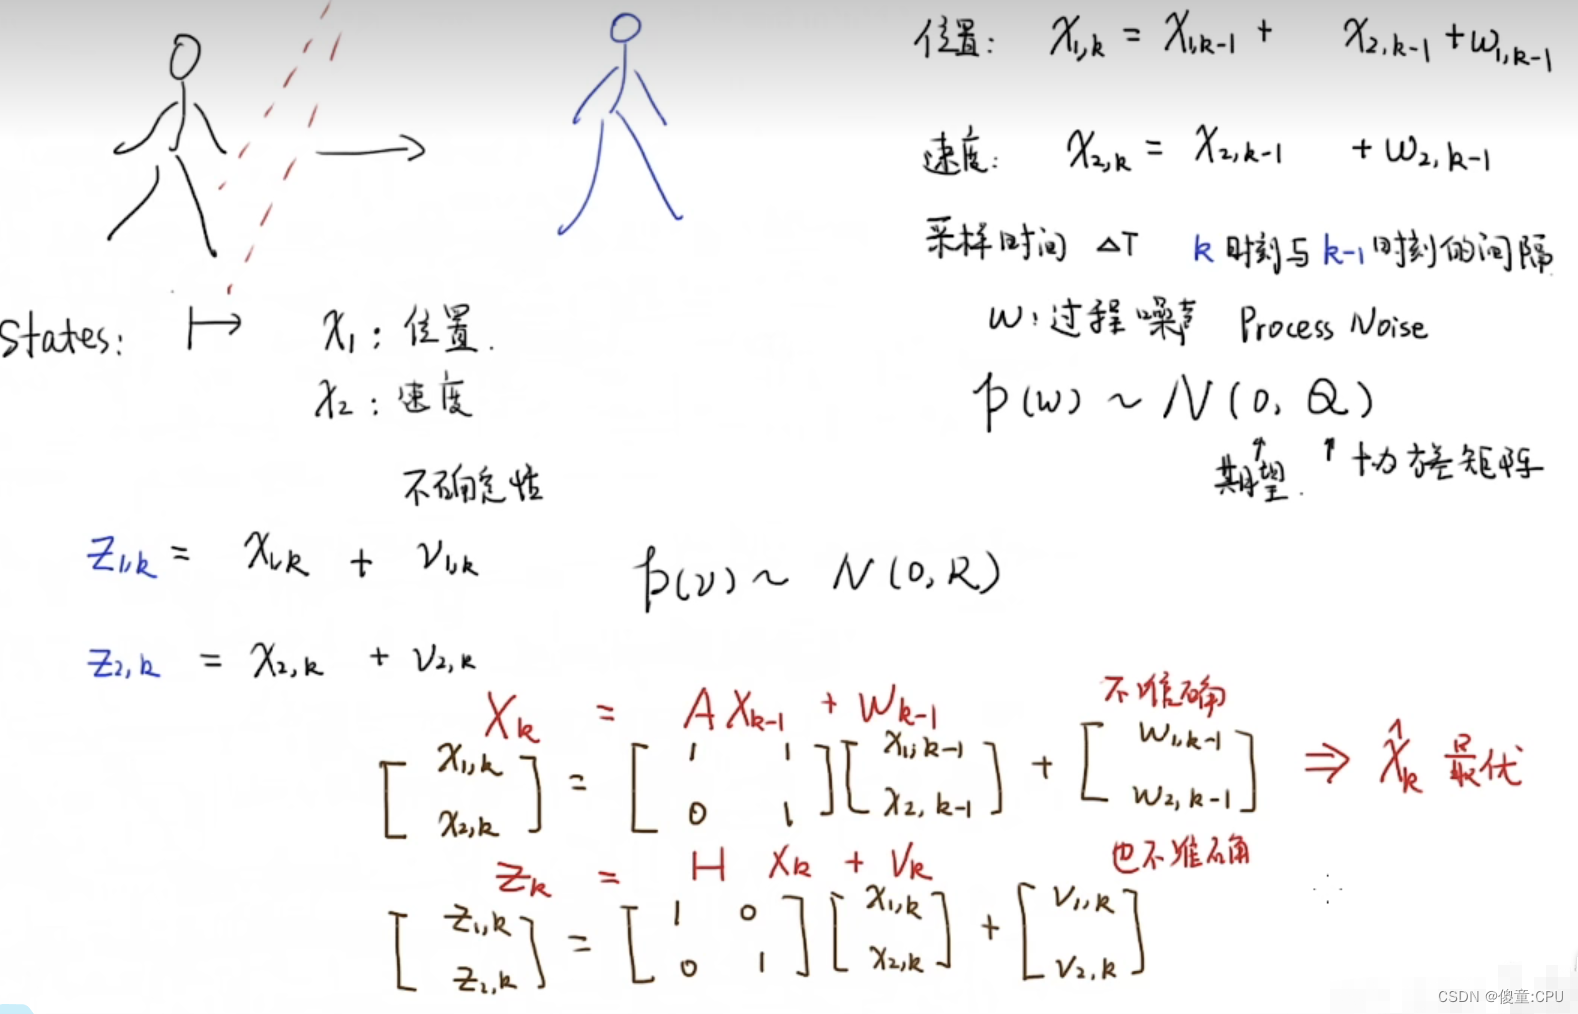 位置: X₁,k = X₁,k-1 + X₂,k-1 + W₁,k-1
速度: X₂,k = X₂,k-1 + W₂,k-1
采样时间 ΔT k时刻与k-1时刻的间隔
W: 过程噪声 Process Noise
P(w) ~ N(0, Q)
期望. 协方差矩阵
States: X₁: 位置.
X₂: 速度
不确定性
Z₁,k = X₁,k + V₁,k
P(v) ~ N(0, R)
Z₂,k = X₂,k + V₂,k
不准确
Xk = A Xk-1 + Wk-1
[X₁,k X₂,k] = [1 1 0 1] [X₁,k-1 X₂,k-1] + [W₁,k-1 W₂,k-1] ⇒ X̂k 最优
也不准确
Zk = H Xk + Vk
[Z₁,k Z₂,k] = [1 0 0 1] [X₁,k X₂,k] + [V₁,k V₂,k]
CSDN @傻童:CPU